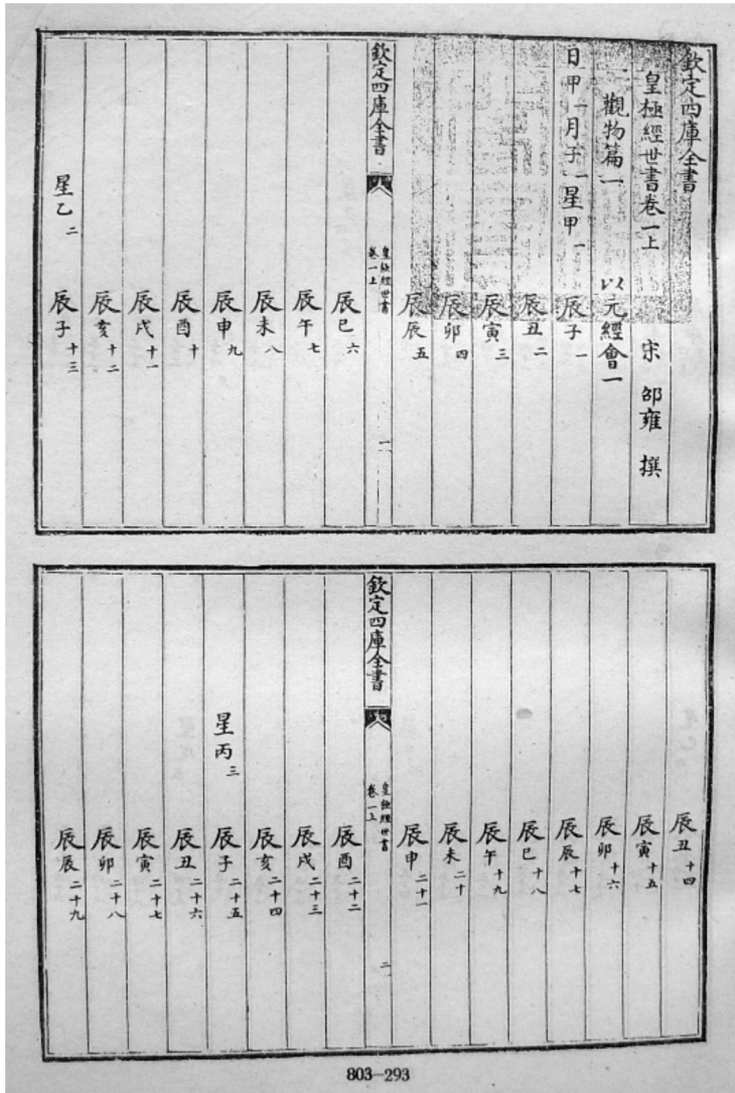 欽定四庫全書
皇極經世書卷一上
宋 邵雍 撰
觀物篇一 以元經會一
日甲一 月子一 星甲一 辰子一
辰丑二
辰寅三
辰卯四
辰辰五
欽定四庫全書
皇極經世書
卷一上
一
辰巳六
辰午七
辰未八
辰申九
辰酉十
辰戌十一
辰亥十二
星乙二 辰子十三
辰丑十四
辰寅十五
辰卯十六
辰辰十七
辰巳十八
辰午十九
辰未二十
辰申二十一
欽定四庫全書
皇極經世書
卷一上
二
辰酉二十二
辰戌二十三
辰亥二十四
星丙三 辰子二十五
辰丑二十六
辰寅二十七
辰卯二十八
辰辰二十九
803-293